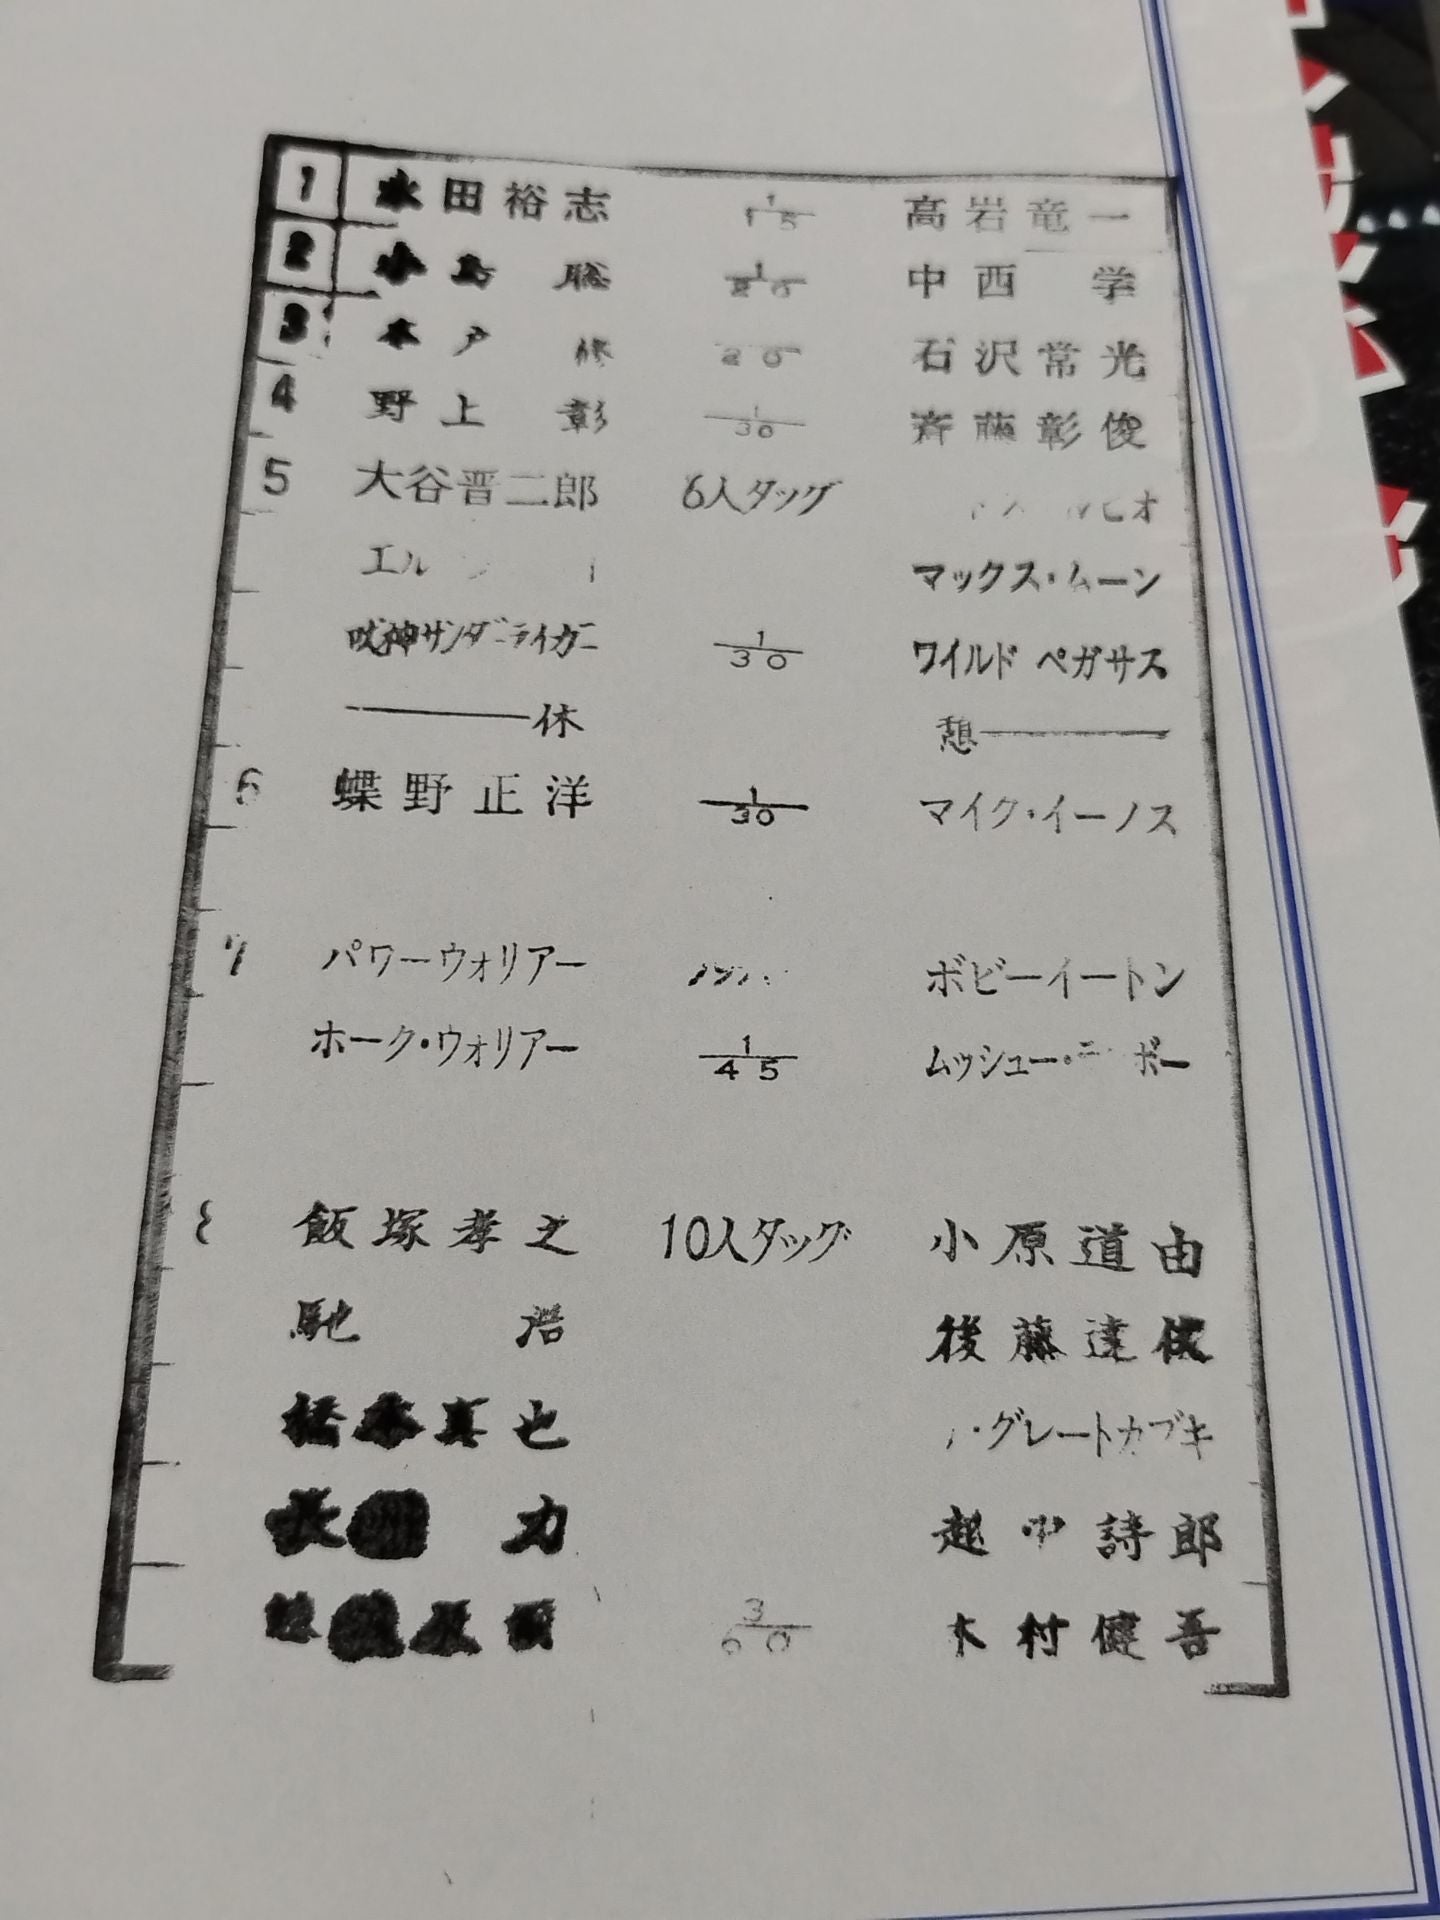 1 永田裕志 1/15 高岩竜一
2 小島 聡 1/20 中西 学
3 木戸 修 20 石沢常光
4 野上 彰 1/30 斉藤彰俊
5 大谷晋二郎 6人タッグ
エル マックス・ムーン
獣神サンダーライガー 1/30 ワイルド ペガサス
休 憩
6 蝶野正洋 1/30 マイク・イーノス
7 パワーウォリアー ボビーイートン
ホーク・ウォリアー 1/45 ムッシュー・
8 飯塚孝之 10人タッグ 小原道由
馳 浩 後藤達俊
橋本真也 グレートカブキ
長州 力 越中詩郎
3/60 木村健吾